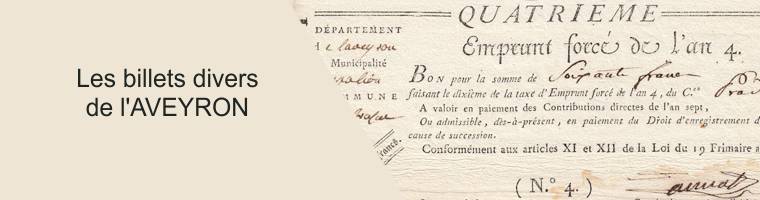 Les billets divers
de l'AVEYRON
QUATRIEME
Emprunt forcé de l'an 4.
DÉPARTEMENT
Municipalité
MMUNE
BON pour la somme de Soixante francs
faisant le dixième de la taxe d'Emprunt forcé de l'an 4, du C.en
A valoir en paiement des Contributions directes de l'an sept,
Ou admissible, dès-à-présent, en paiement du Droit d'enregistrement d
cause de succession.
Conformément aux articles XI et XII de la Loi du 19 Frimaire a
francs.
( N.° 4. )